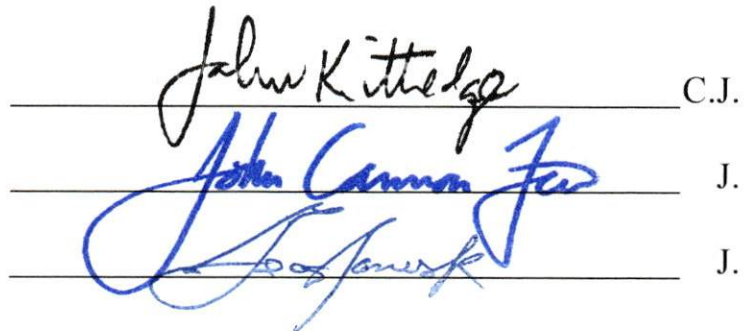 John Kittredge C.J.
John Cannon Few J.
J.